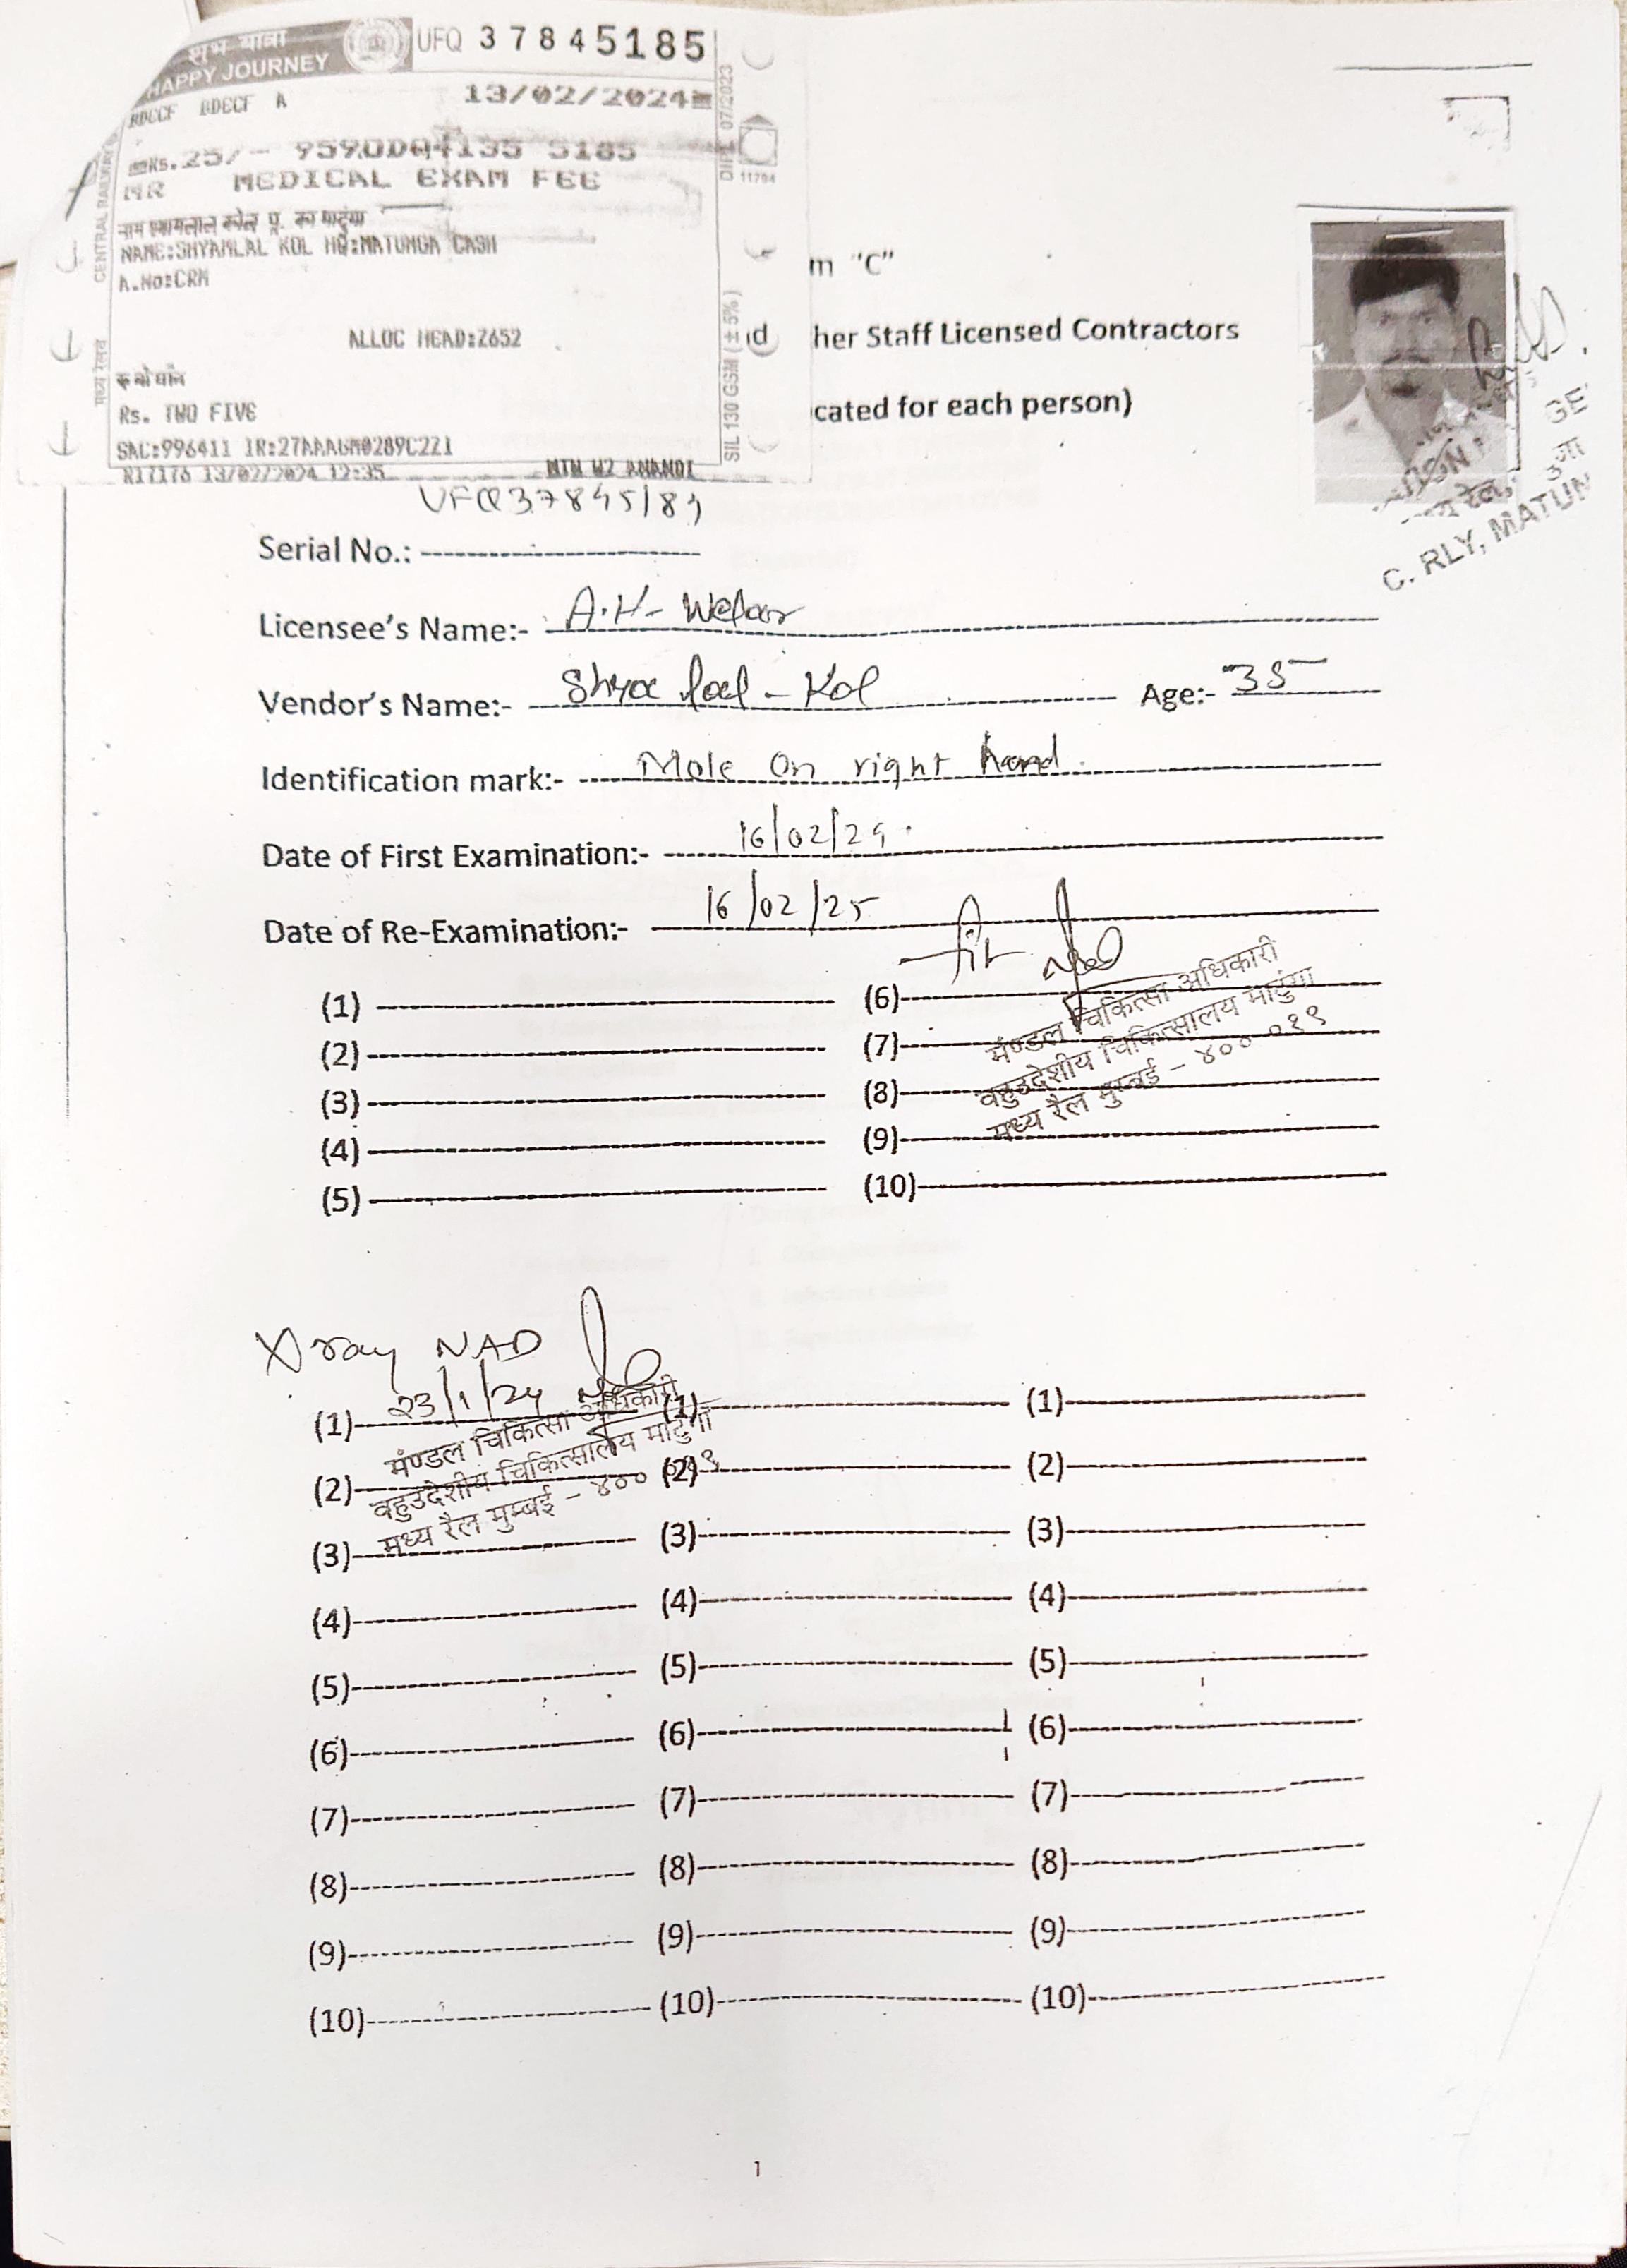 शुभ यात्रा
HAPPY JOURNEY
UFQ 37845185
13/02/2024
BDECF BDECF A
Rs.25/- 5185
MR MEDICAL EXAM FEE
NAME:SHYAMLAL KOL HQ:MATUNGA CASH
A.No:CRM
ALLOC HEAD:Z652
Rs. TWO FIVE
SAC:996411
R17176 13/02/2024 12:35 MTN W2 ANANDI
CENTRAL RAILWAY
मध्य रेलवे
07/2023
11794
SIL 130 GSM (± 5%)
m "C"
her Staff Licensed Contractors
cated for each person)
GE
C. RLY, MATUN
UFQ37845185
Serial No.:
Licensee's Name:- A.H-
Vendor's Name:- Shya lal - Kol Age:- 35
Identification mark:- Mole On right hand
Date of First Examination:- 16/02/24
Date of Re-Examination:- 16/02/25
fit
(1) (6)
(2) (7)
(3) (8)
(4) (9)
(5) (10)
मंण्डल चिकित्सा अधिकारी
वहुउदेशीय चिकित्सालय माटुंगा
मध्य रैल मुम्बई – ४०० ०१९
X ray NAD
(1) 23/1/24 (1) (1)
मंण्डल चिकित्सा अधिकारी
वहुउदेशीय चिकित्सालय माटुंगा
मध्य रैल मुम्बई – ४०० ०१९
(2) (2) (2)
(3) (3) (3)
(4) (4) (4)
(5) (5) (5)
(6) (6) (6)
(7) (7) (7)
(8) (8) (8)
(9) (9) (9)
(10) (10) (10)
1